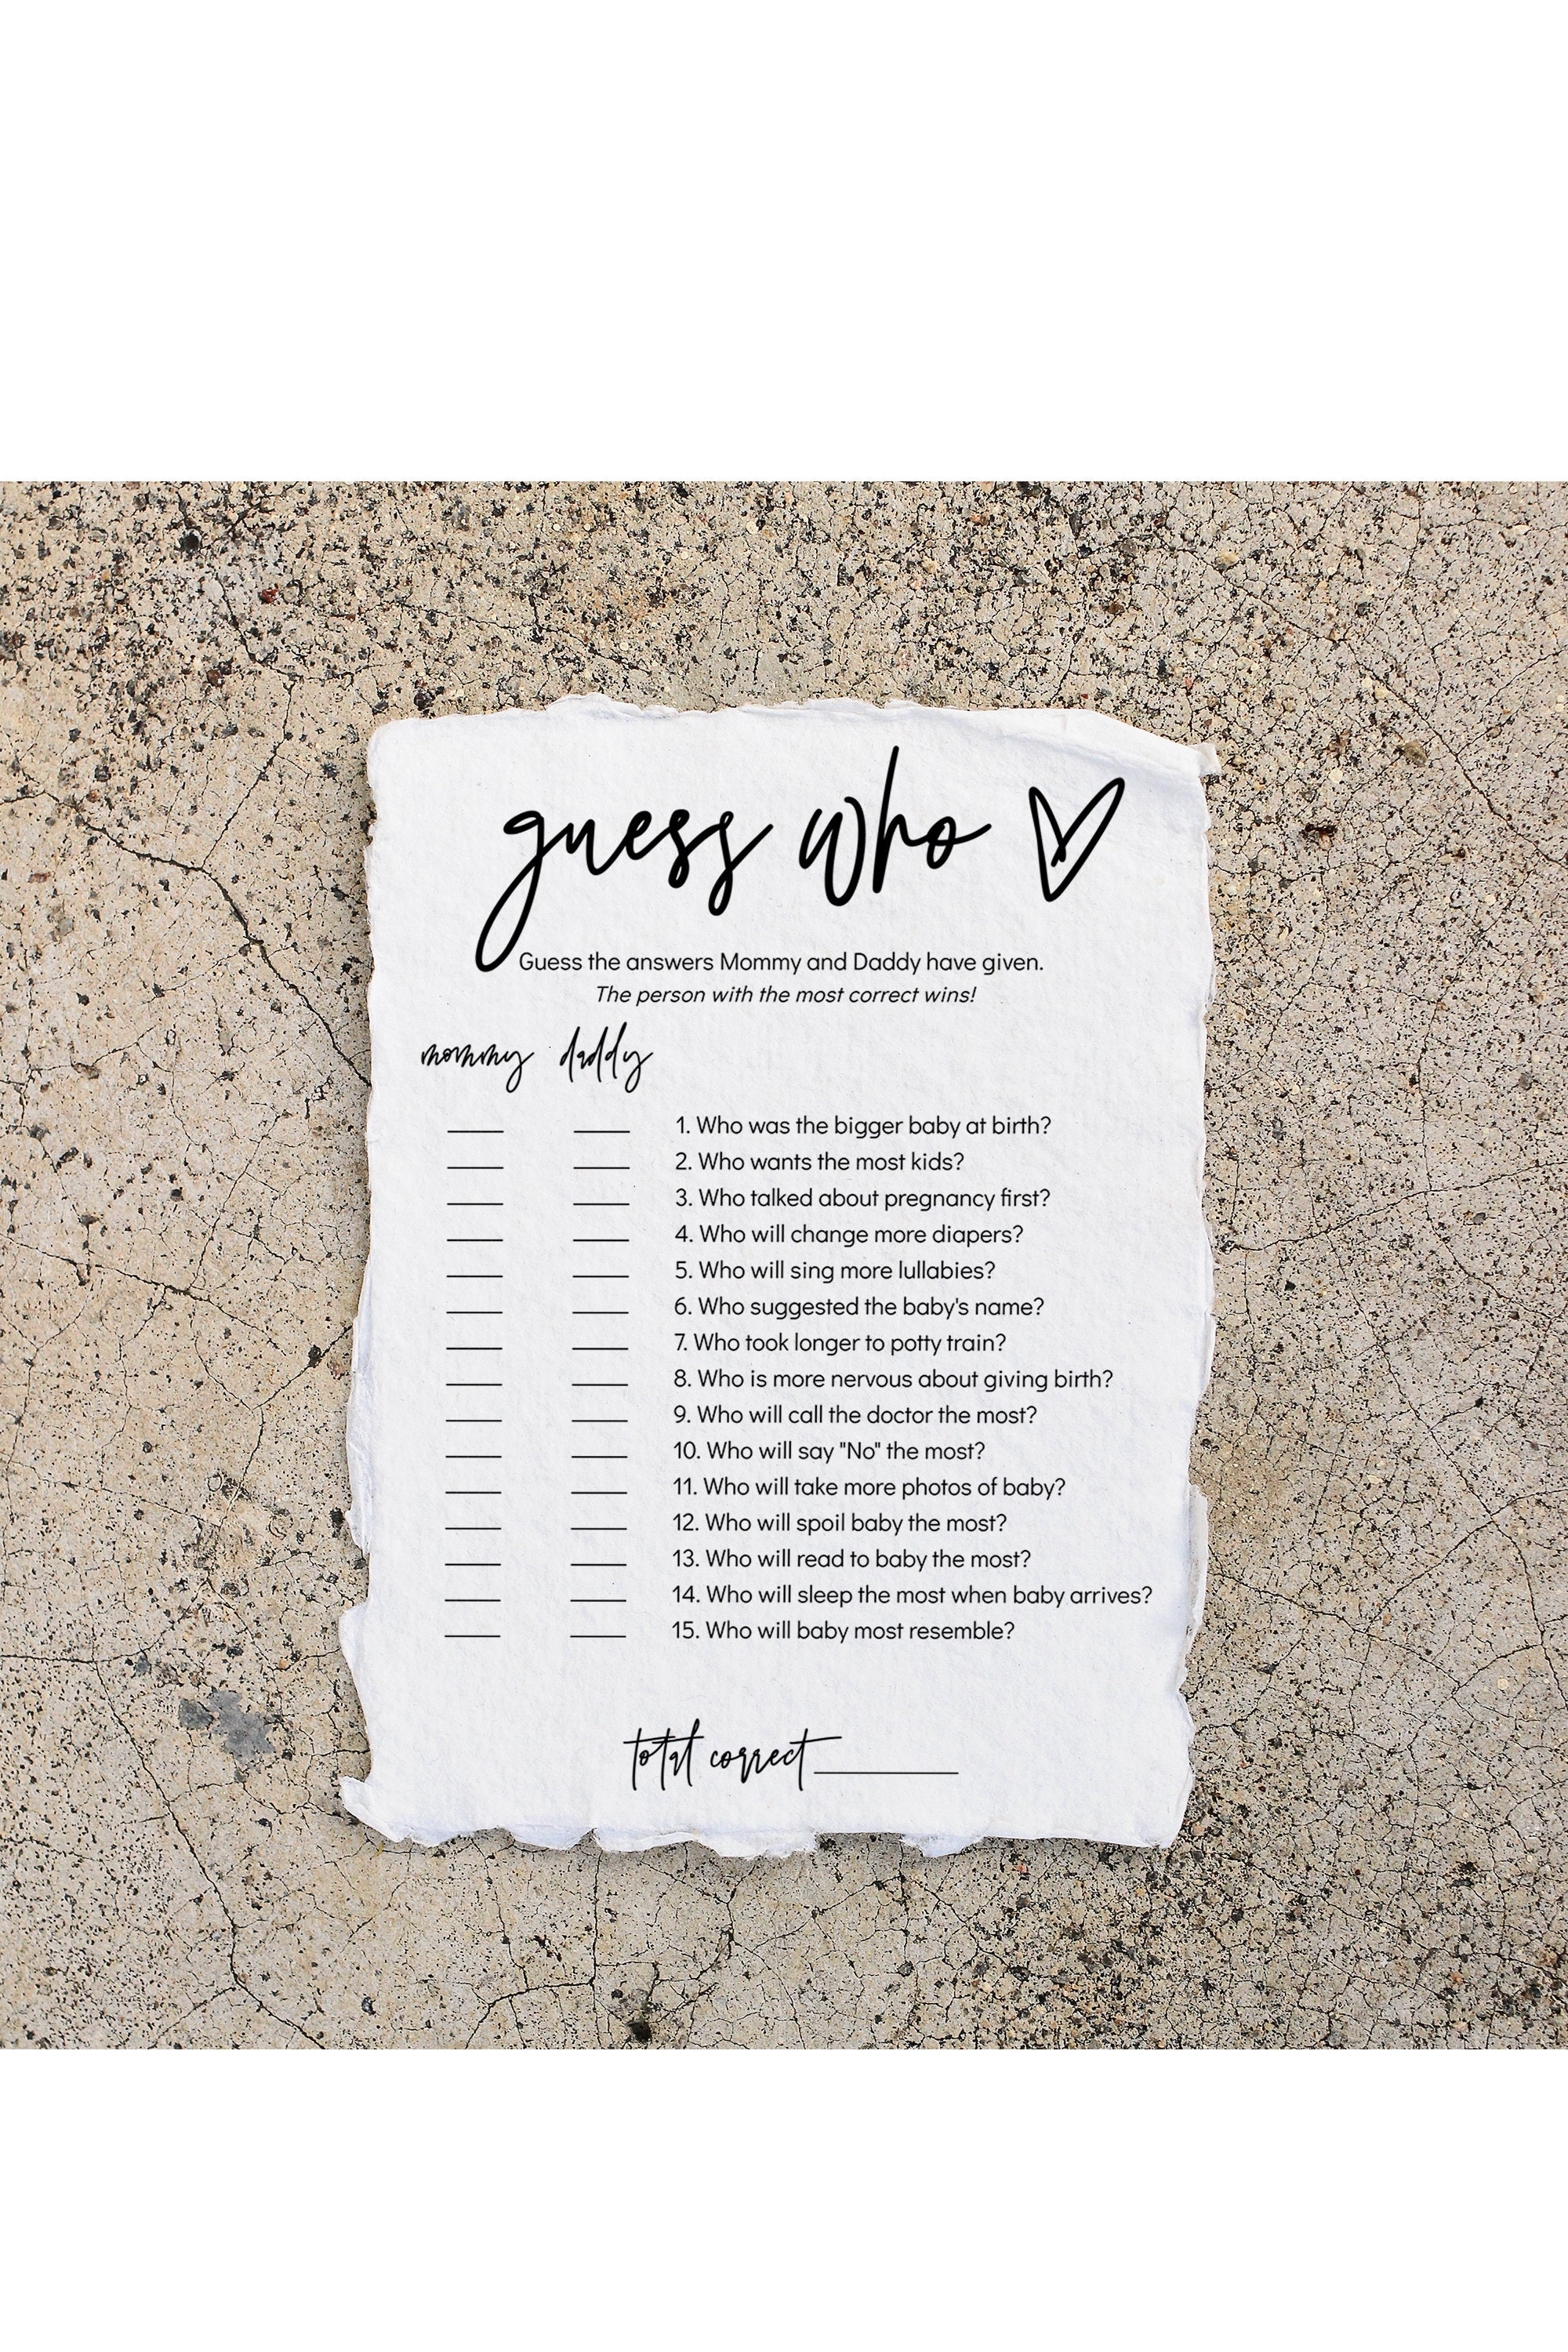 guess who
Guess the answers Mommy and Daddy have given.
The person with the most correct wins!
mommy daddy
1. Who was the bigger baby at birth?
2. Who wants the most kids?
3. Who talked about pregnancy first?
4. Who will change more diapers?
5. Who will sing more lullabies?
6. Who suggested the baby's name?
7. Who took longer to potty train?
8. Who is more nervous about giving birth?
9. Who will call the doctor the most?
10. Who will say "No" the most?
11. Who will take more photos of baby?
12. Who will spoil baby the most?
13. Who will read to baby the most?
14. Who will sleep the most when baby arrives?
15. Who will baby most resemble?
total correct